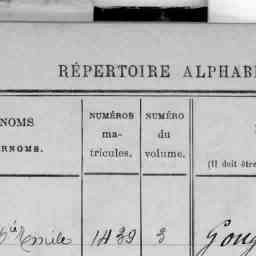 RÉPERTOIRE ALPHAB
NOMS
RNOMS.
NUMÉROS
ma-
tricules.
NUMÉRO
du
volume.
(Il doit être
Emile 1439 3 Goug